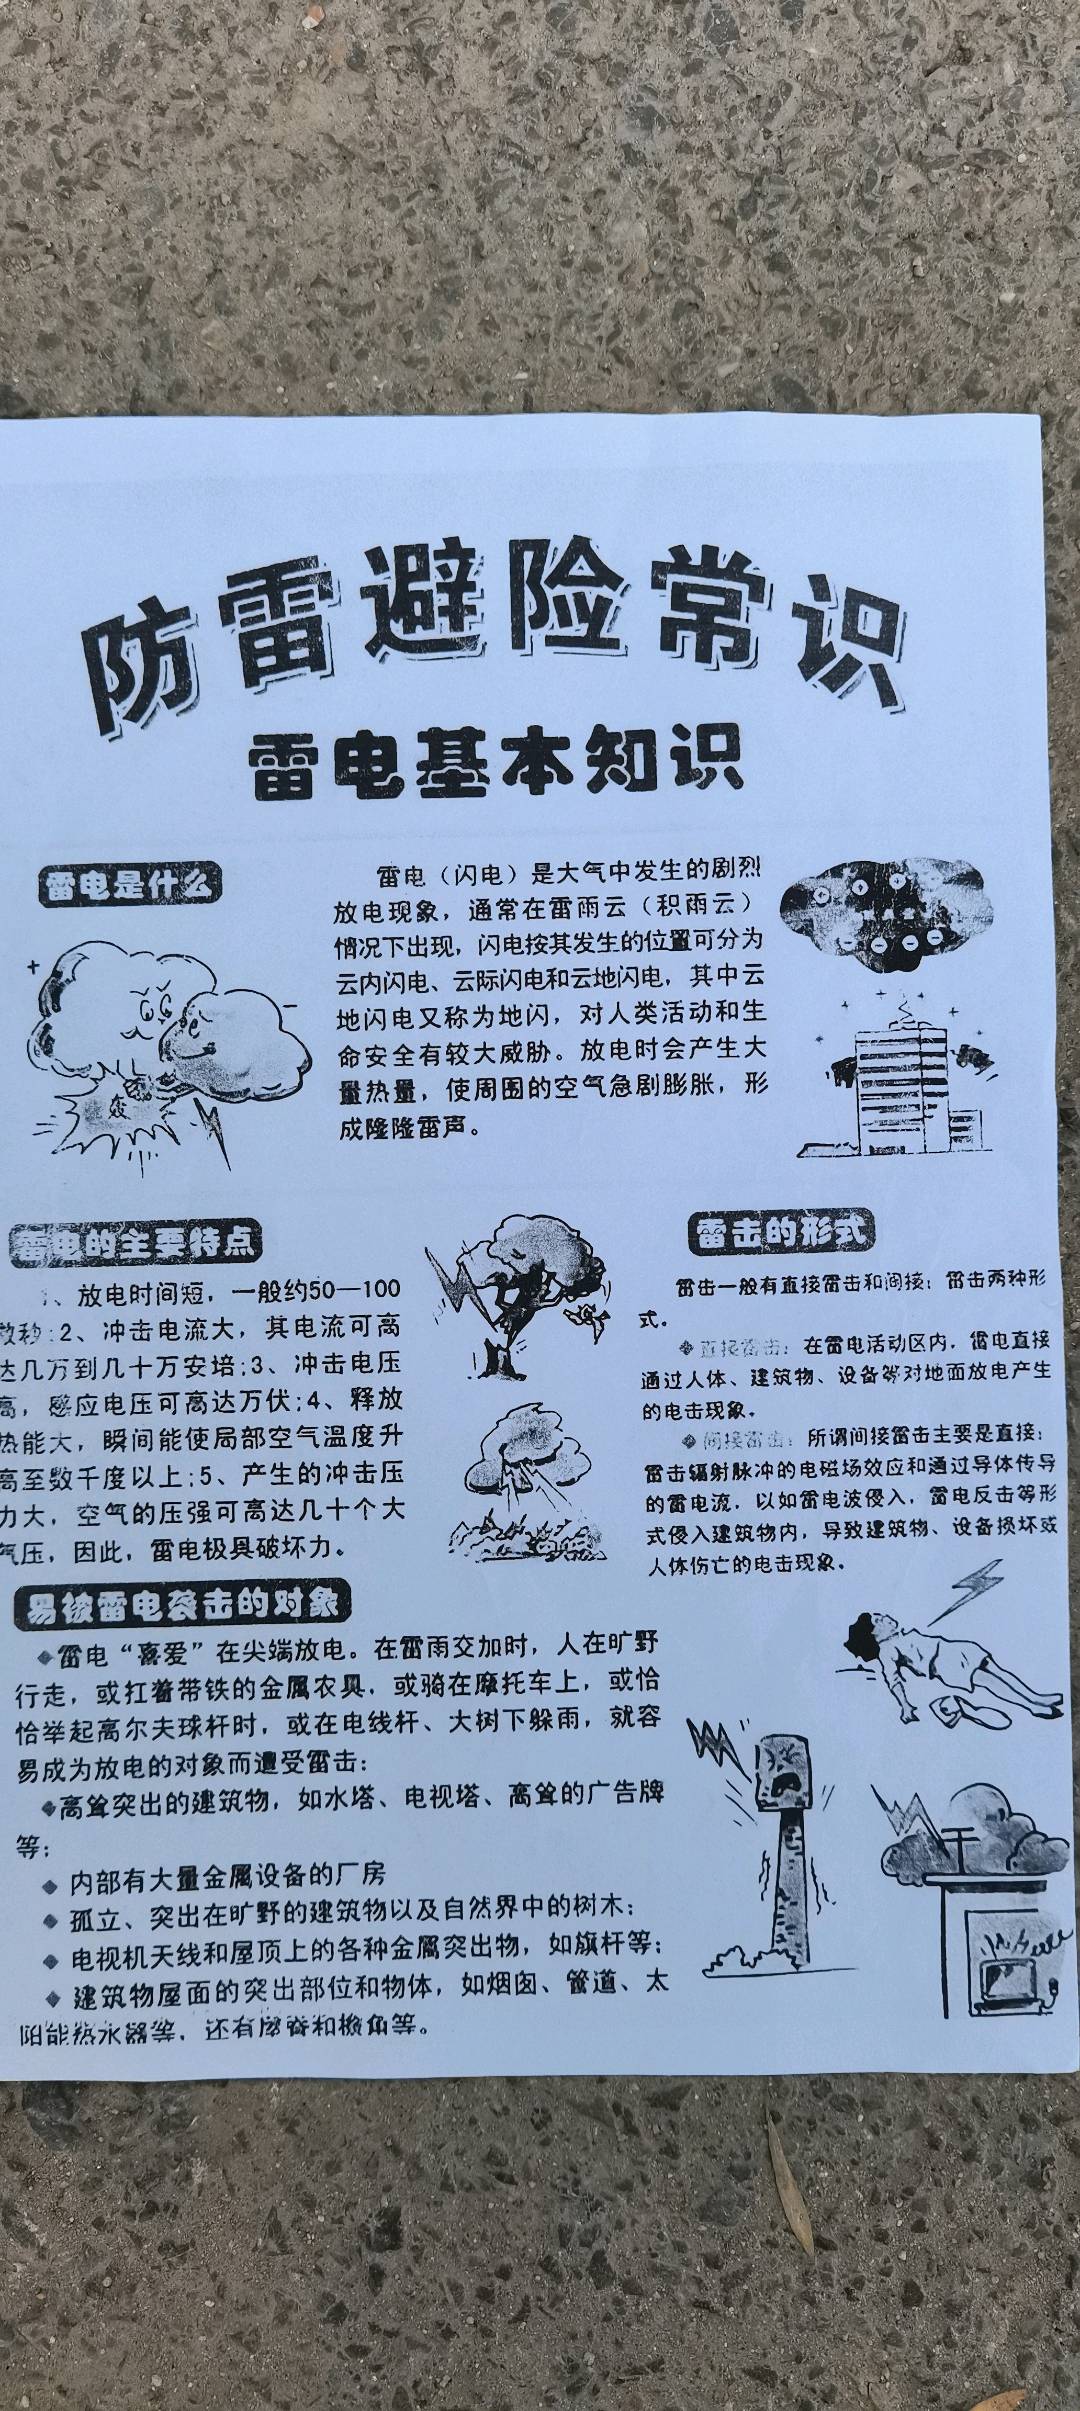 防雷避险常识
雷电基本知识
雷电是什么
雷电（闪电）是大气中发生的剧烈
放电现象，通常在雷雨云（积雨云）
情况下出现，闪电按其发生的位置可分为
云内闪电、云际闪电和云地闪电，其中云
地闪电又称为地闪，对人类活动和生
命安全有较大威胁。放电时会产生大
量热量，使周围的空气急剧膨胀，形
成隆隆雷声。
轰
雷电的主要特点
1、放电时间短，一般约50—100
微秒;2、冲击电流大，其电流可高
达几万到几十万安培;3、冲击电压
高，感应电压可高达万伏;4、释放
热能大，瞬间能使局部空气温度升
高至数千度以上;5、产生的冲击压
力大，空气的压强可高达几十个大
气压，因此，雷电极具破坏力。
雷击的形式
雷击一般有直接雷击和间接：雷击两种形
式。
◆直接雷击：在雷电活动区内，雷电直接
通过人体、建筑物、设备等对地面放电产生
的电击现象。
◆间接雷击：所谓间接雷击主要是直接：
雷击辐射脉冲的电磁场效应和通过导体传导
的雷电流，以如雷电波侵入，雷电反击等形
式侵入建筑物内，导致建筑物、设备损坏或
人体伤亡的电击现象。
易被雷电袭击的对象
◆雷电“喜爱”在尖端放电。在雷雨交加时，人在旷野
行走，或扛着带铁的金属农具，或骑在摩托车上，或恰
恰举起高尔夫球杆时，或在电线杆、大树下躲雨，就容
易成为放电的对象而遭受雷击：
◆高耸突出的建筑物，如水塔、电视塔、高耸的广告牌
等；
◆ 内部有大量金属设备的厂房
◆ 孤立、突出在旷野的建筑物以及自然界中的树木；
◆ 电视机天线和屋顶上的各种金属突出物，如旗杆等；
◆ 建筑物屋面的突出部位和物体，如烟囱、管道、太
阳能热水器等，还有屋脊和檐角等。